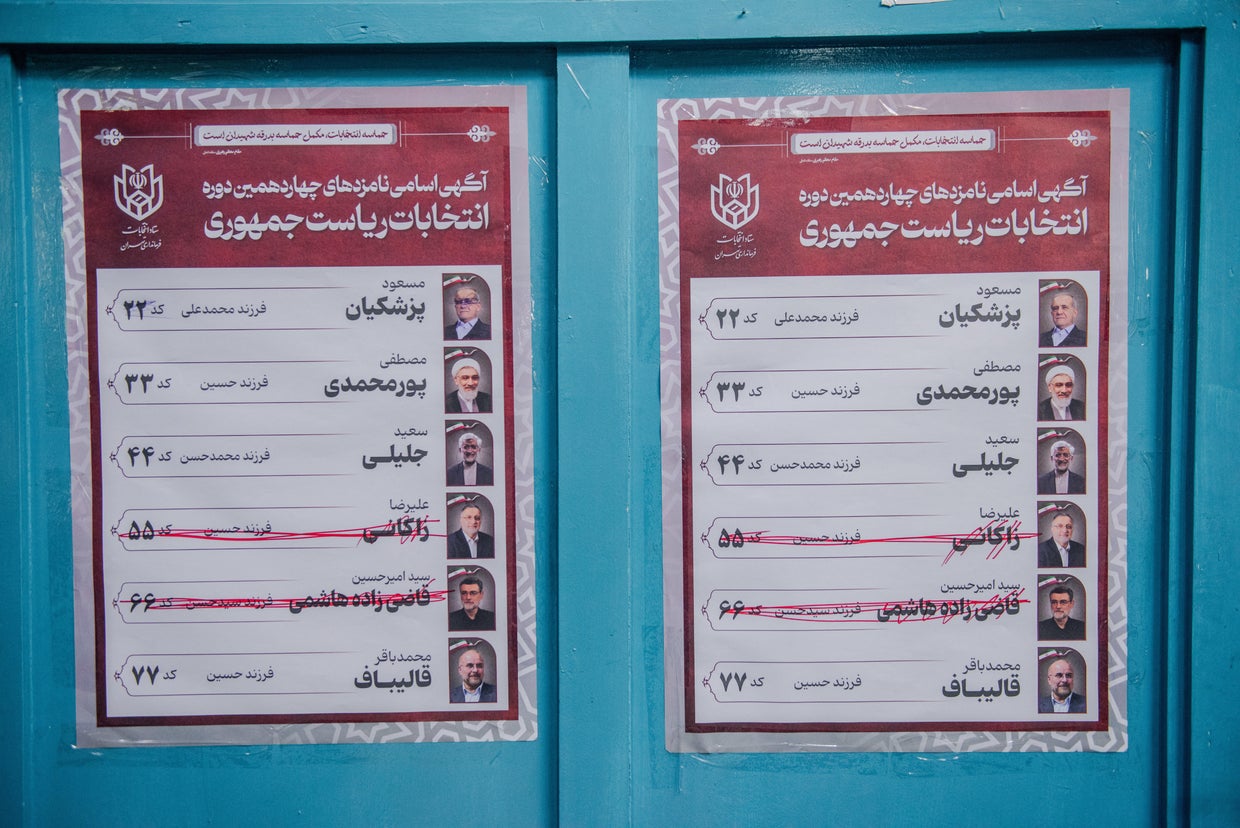 حماسه انتخابات، مکمل حماسه بدرقه شهیدان است
آگهی اسامی نامزدهای چهاردهمین دوره
انتخابات ریاست جمهوری
ستاد انتخابات
فرمانداری تهران
مسعود
پزشکیان فرزند محمدعلی کد ۲۲
مصطفی
پورمحمدی فرزند حسین کد ۳۳
سعید
جلیلی فرزند محمدحسن کد ۴۴
علیرضا
زاکانی فرزند حسین کد ۵۵
سید امیرحسین
قاضی زاده هاشمی فرزند سیدحسن کد ۶۶
محمدباقر
قالیباف فرزند حسین کد ۷۷
حماسه انتخابات، مکمل حماسه بدرقه شهیدان است
آگهی اسامی نامزدهای چهاردهمین دوره
انتخابات ریاست جمهوری
ستاد انتخابات
فرمانداری تهران
مسعود
پزشکیان فرزند محمدعلی کد ۲۲
مصطفی
پورمحمدی فرزند حسین کد ۳۳
سعید
جلیلی فرزند محمدحسن کد ۴۴
علیرضا
زاکانی فرزند حسین کد ۵۵
سید امیرحسین
قاضی زاده هاشمی فرزند سیدحسن کد ۶۶
محمدباقر
قالیباف فرزند حسین کد ۷۷